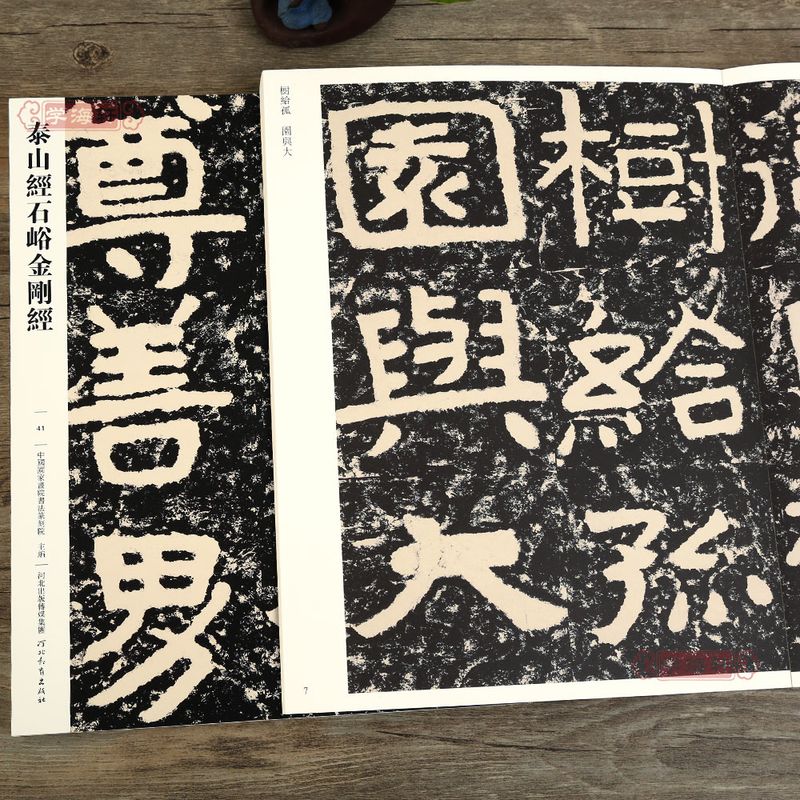 学海
泰山經石峪金剛經
41
中國國家畫院書法篆刻院 主編
河北出版傳媒集團
河北教育出版社
尊善男
樹給孤 園與大
樹給孤
園與大
7